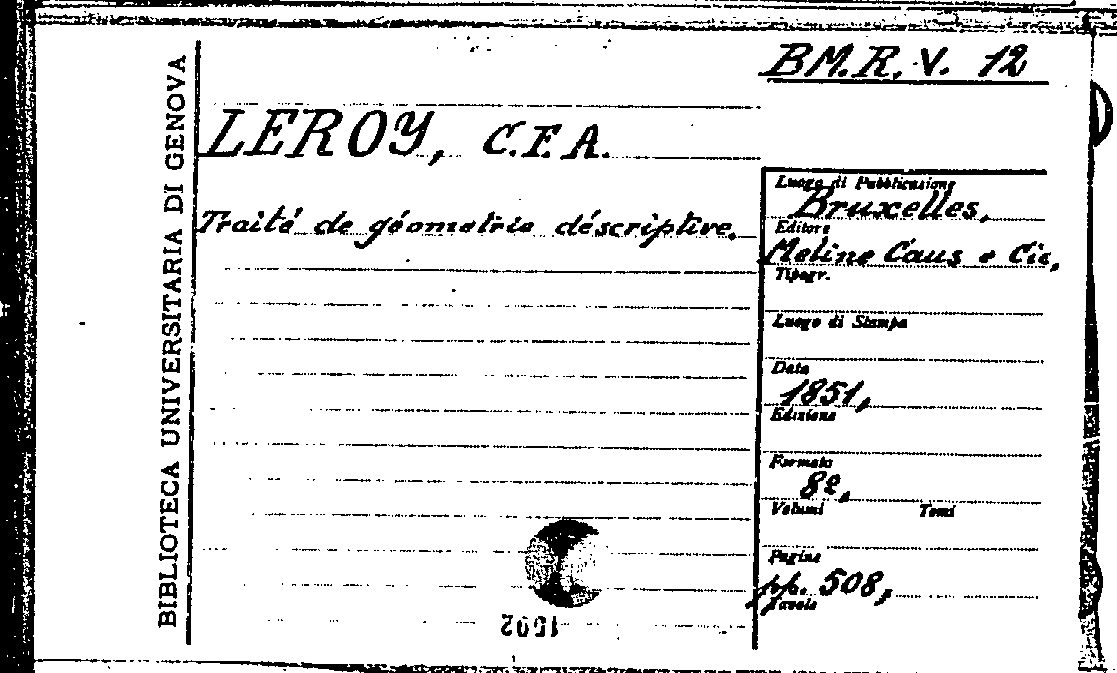 BIBLIOTECA UNIVERSITARIA DI GENOVA
BM.R. V. 12
LEROY, C.F.A.
Traité de géometrie déscriptive.
Luogo di Pubblicazione
Bruxelles,
Editore
Meline Caus e Cie,
Tipogr.
Luogo di Stampa
Data
1851,
Edizione
Formato
8º,
Volumi Tomi
Pagine
pp. 508,
Tavole
1502